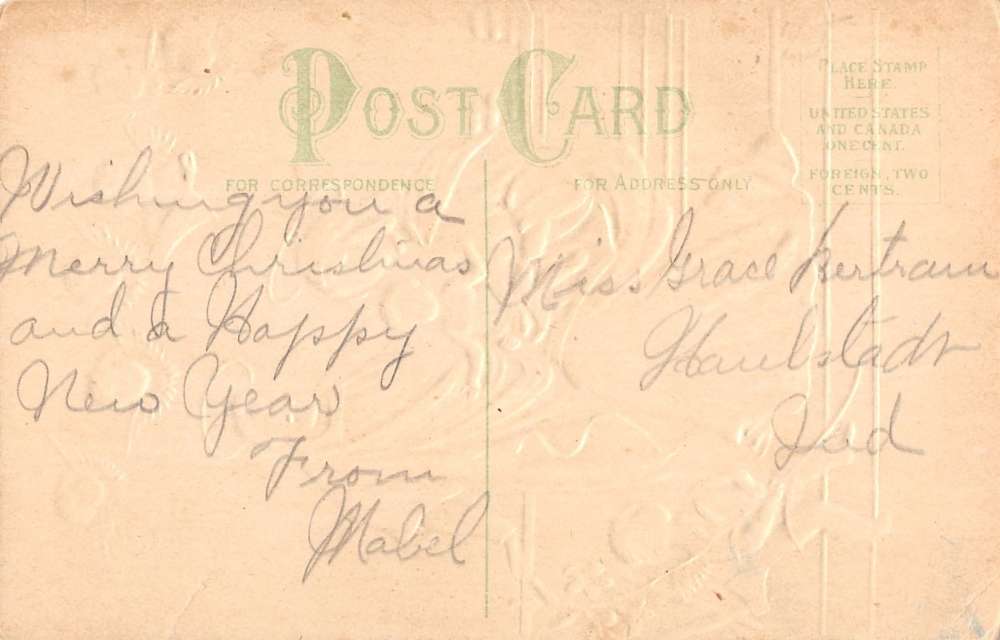 POST CARD
PLACE STAMP
HERE.
UNITED STATES
AND CANADA
ONE CENT.
FOREIGN, TWO
CENTS.
FOR CORRESPONDENCE
FOR ADDRESS ONLY
Wishing you a
Merry Christmas
and a Happy
New Year
From
Mabel
Miss Grace Bertram
Haubstadt
Ind